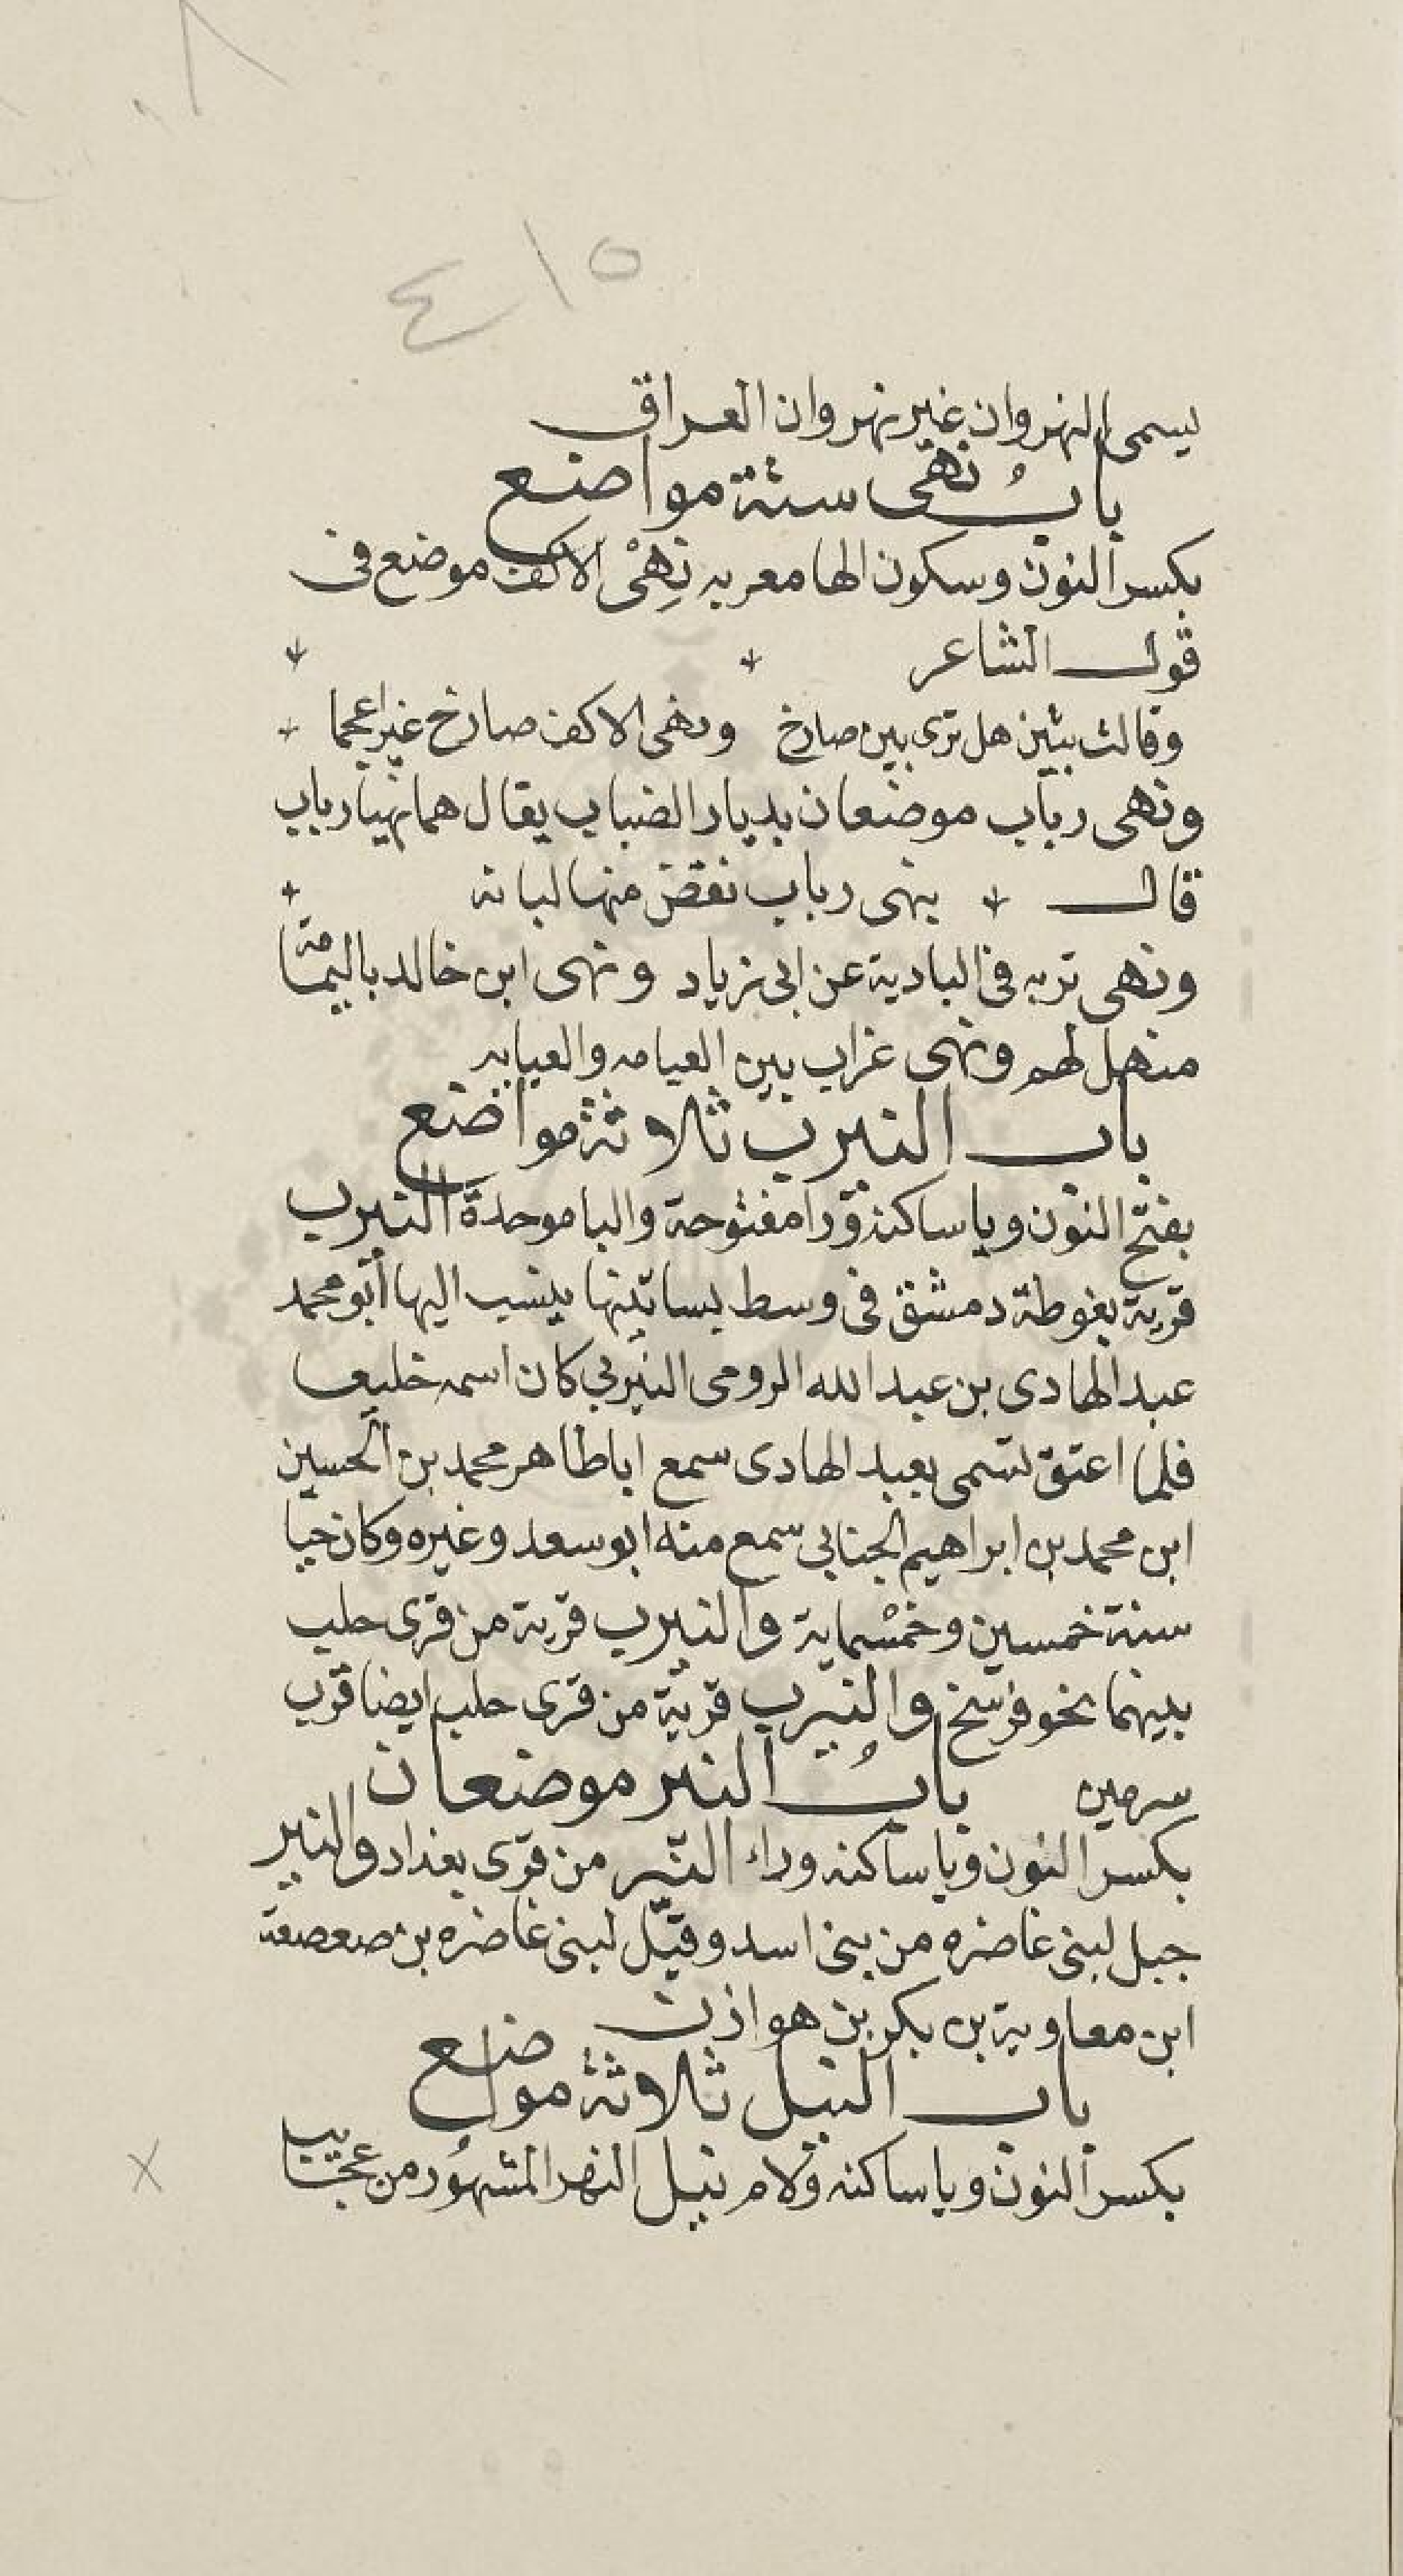 ٤١٥
يسمى النهروان غير نهروان العراق
بابُ نهى ستة مواضع
بكسر النون وسكون الها معربه نِهْىُ الاكف موضع فى
قول الشاعر
وقالت تبين هل ترى بين صارخ ونهى الاكف صارخ غير اعجما
ونهى رباب موضعان بديار الضباب يقال هما نهيا رباب
قال بنهى رباب نقض منها لبانة
ونهى تربه فى البادية عن ابى زياد ونهى ابن خالد باليمامة
منهل لهم ونهى غراب بين العيامه والعيابه
باب النيرب ثلاثة مواضع
بفتح النون ويا ساكنة ورا مفتوحة والبا موحدة النيرب
قرية بغوطة دمشق فى وسط بساتينها ينسب اليها ابو محمد
عبد الهادى بن عبد الله الرومى النيربي كان اسمه خليعا
فلما اعتق تسمى بعبد الهادى سمع ابا طاهر محمد بن الحسين
ابن محمد بن ابراهيم الجنابى سمع منه ابو سعد وغيره وكان حيا
سنة خمسين وخمسماية والنيرب قرية من قرى حلب
بينهما نحو فرسخ والنيرب قرية من قرى حلب ايضا قرب
سرمين بابُ النير موضعان
بكسر النون ويا ساكنه وراء النير من قرى بغداد والنير
جبل لبنى غاضره من بنى اسد وقيل لبنى غاضره بن صعصعة
ابن معاوية بن بكر بن هوازن
باب النيل ثلاثة مواضع
بكسر النون ويا ساكنه ولام نيل النهر المشهور من عجايب